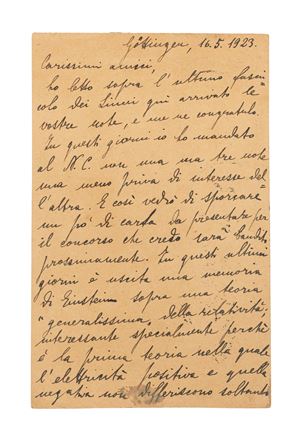 Göttingen, 16.5.1923.
Carissimi amici,
ho letto sopra l'ultimo fasci
colo dei Lincei qui arrivato le
vostre note, e me ne congratulo.
In questi giorni io ho mandato
al N.C. non una ma tre note
una meno priva di interesse del=
l'altra. E così vedrò di sporcare
un pò di carta da presentare per
il concorso che credo sarà bandito
prossimamente. In questi ultimi
giorni è uscita una memoria
di Einstein sopra una teoria
"generalissima" della relatività,
interessante specialmente perchè
è la prima teoria nella quale
l'elettricità positiva e quella
negativa non differiscono soltanto